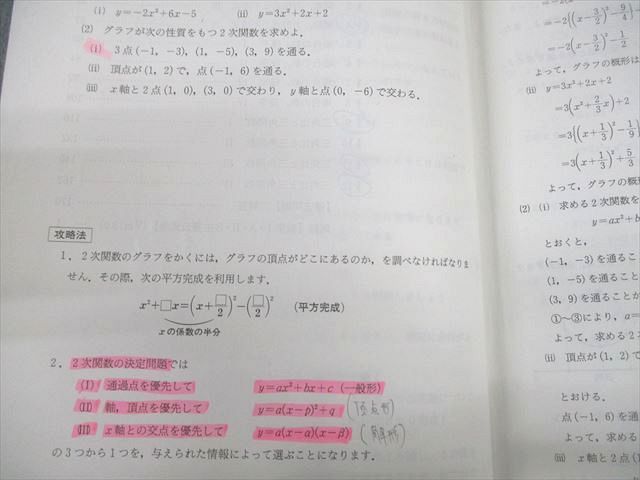 (i) y=-2x²+6x-5 (ii) y=3x²+2x+2
(2) グラフが次の性質をもつ2次関数を求めよ.
(i) 3点(-1, -3), (1, -5), (3, 9)を通る.
(ii) 頂点が(1, 2)で, 点(-1, 6)を通る.
(iii) x軸と2点(1, 0), (3, 0)で交わり, y軸と点(0, -6)で交わる.
攻略法
1. 2次関数のグラフをかくには, グラフの頂点がどこにあるのか, を調べなければなりま
せん. その際, 次の平方完成を利用します.
x²+□x=(x+□/2)²-(□/2)² (平方完成)
xの係数の半分
2. 2次関数の決定問題では
(I) 通過点を優先して y=ax²+bx+c (一般形)
(II) 軸, 頂点を優先して y=a(x-p)²+q (頂点形)
(III) x軸との交点を優先して y=a(x-α)(x-β)
の3つから1つを, 与えられた情報によって選ぶことになります.
=-2{(x-3/2)²-9/4}
=-2(x-3/2)²-1/2
よって, グラフの概形は
(ii) y=3x²+2x+2
=3(x²+2/3x)+2
=3{(x+1/3)²-1/9}
=3(x+1/3)²+5/3
よって, グラフの概
(2) (i) 求める2次関数を
y=ax²+b
とおくと,
(-1, -3)を通るこ
(1, -5)を通ること
(3, 9)を通ることか
①～③により, a=
よって, 求める2
(ii) 頂点が(1, 2)で
とおける.
点(-1, 6)を通
よって, 求める
(iii) x軸と2点(1,